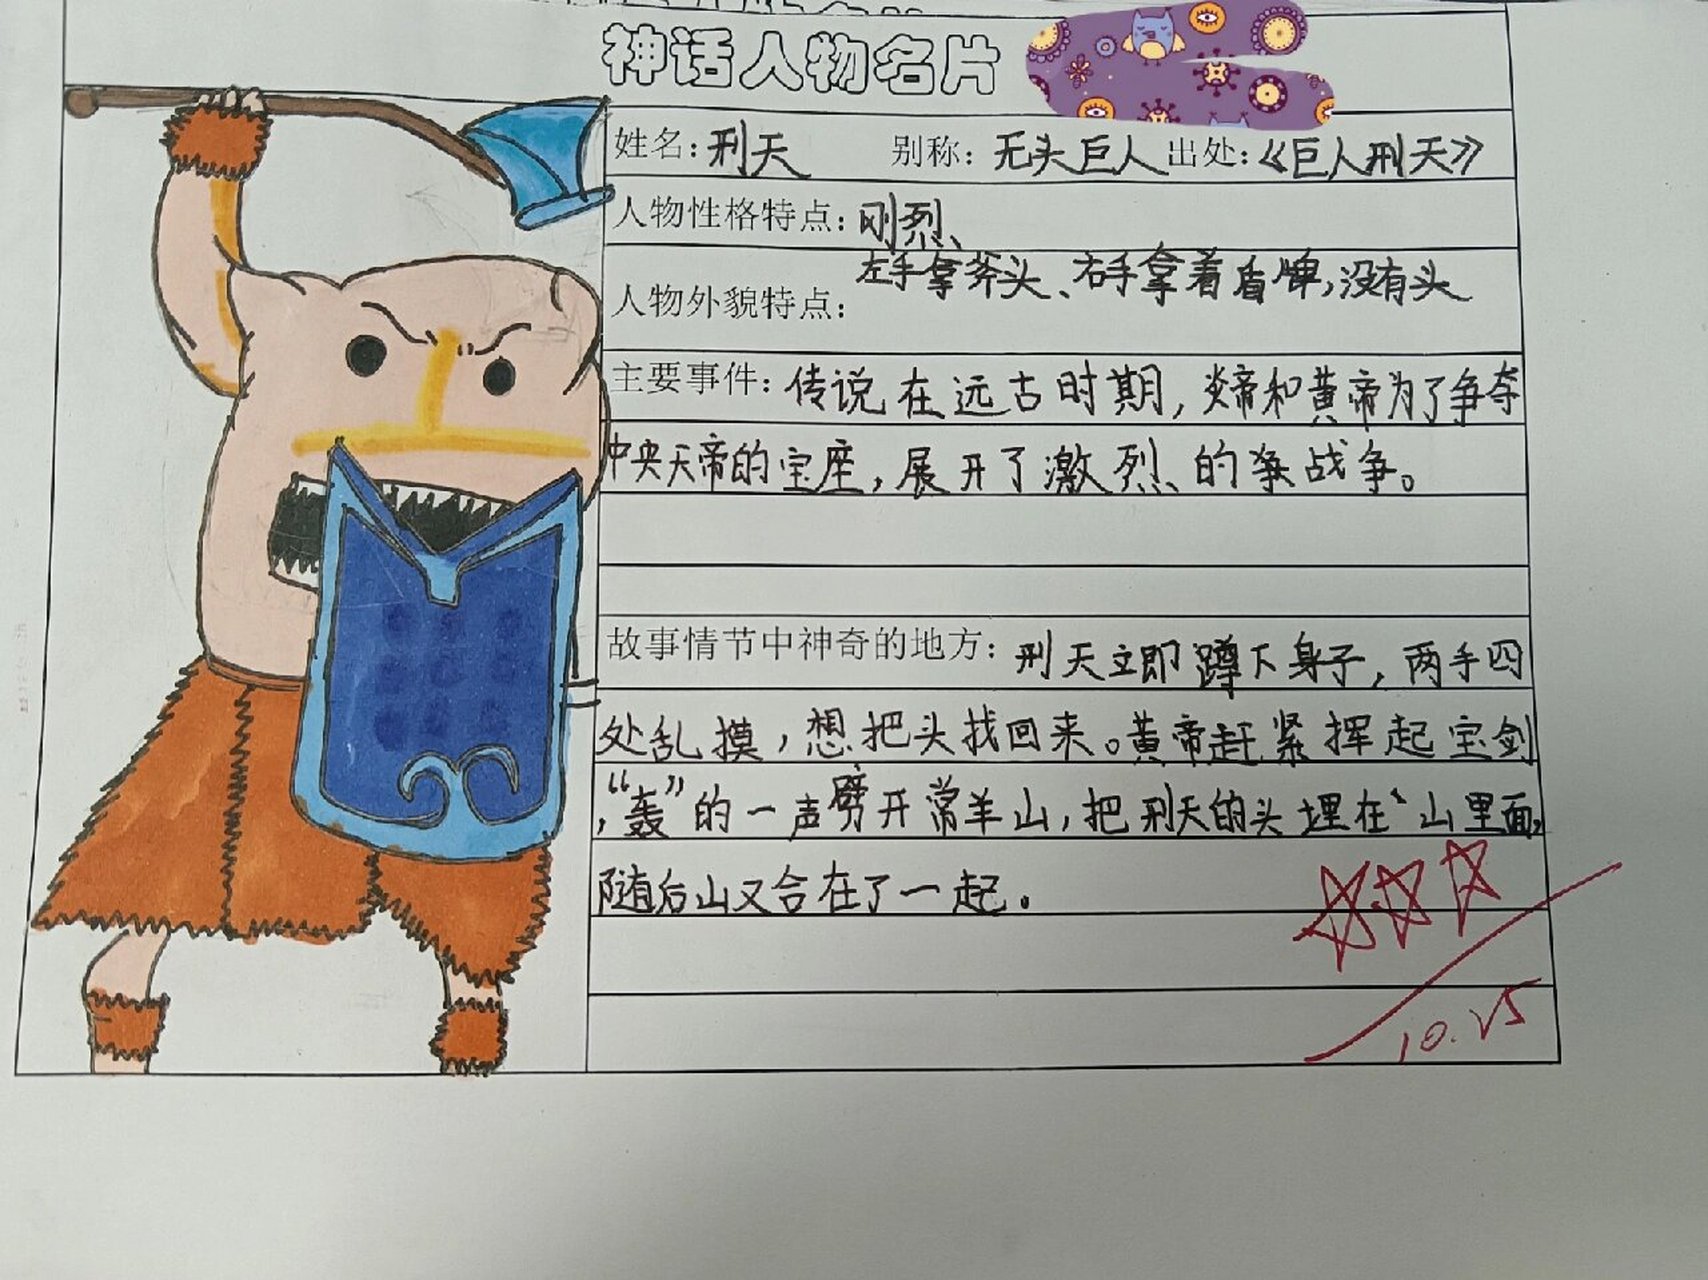 神话人物名片
姓名：刑天 别称：无头巨人 出处：《巨人刑天》
人物性格特点：刚烈、
人物外貌特点：左手拿斧头、右手拿着盾牌，没有头
主要事件：传说在远古时期，炎帝和黄帝为了争夺
中央天帝的宝座，展开了激烈的争战争。
故事情节中神奇的地方：刑天立即蹲下身子，两手四
处乱摸，想把头找回来。黄帝赶紧挥起宝剑
，“轰”的一声劈开常羊山，把刑天的头埋在山里面，
随后山又合在了一起。
10.25